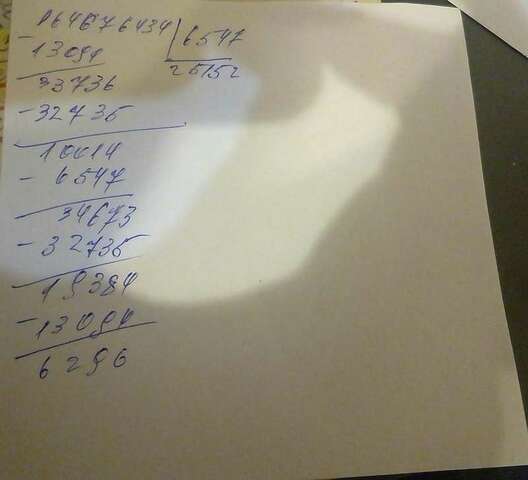 164676434 | 6547
- 13094 25152
33736
- 32735
10014
- 6547
34673
- 32735
19384
- 13094
6296